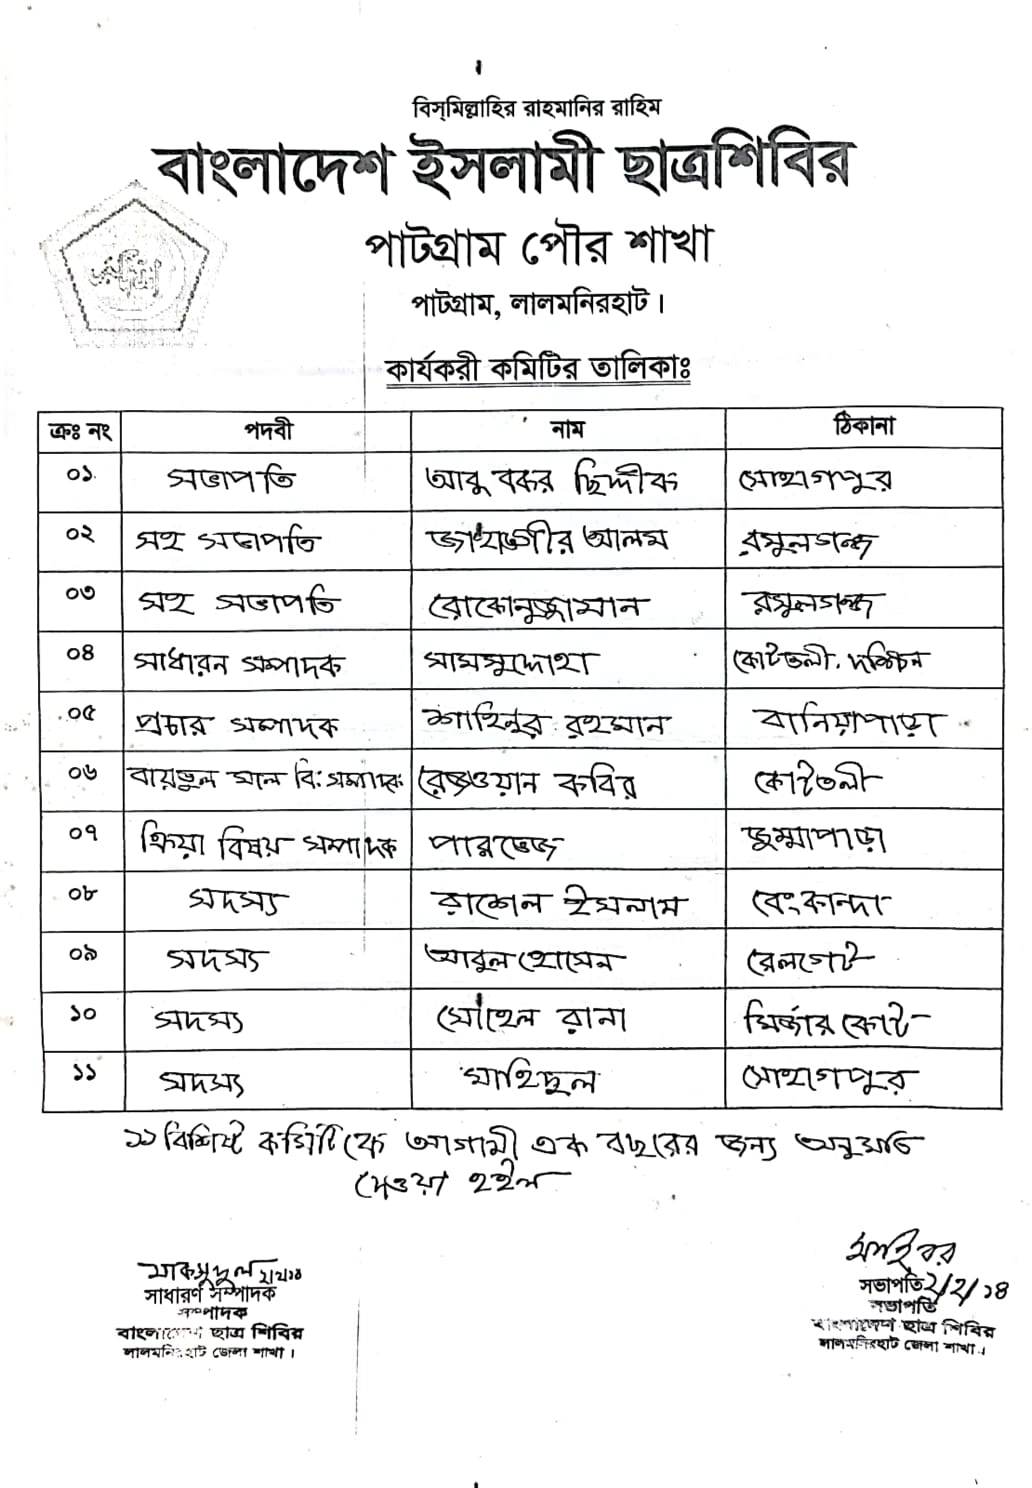 বিস্‌মিল্লাহির রাহমানির রাহিম
বাংলাদেশ ইসলামী ছাত্রশিবির
পাটগ্রাম পৌর শাখা
পাটগ্রাম, লালমনিরহাট।
কার্যকরী কমিটির তালিকাঃ
ক্রঃ নং পদবী নাম ঠিকানা
০১ সভাপতি আবু বকর ছিদ্দীক সোহাগপুর
০২ সহ সভাপতি জাহাঙ্গীর আলম রসুলগঞ্জ
০৩ সহ সভাপতি রোকোনুজ্জামান রসুলগঞ্জ
০৪ সাধারন সম্পাদক সামসুদ্দোহা কোটতলী
০৫ প্রচার সম্পাদক শাহিনুর রহমান বানিয়াপাড়া
০৬ বায়তুল মাল বি: সম্পাদক রেজওয়ান কবির কোটতলী
০৭ ক্রিয়া বিষয় সম্পাদক পারভেজ জুম্মাপাড়া
০৮ সদস্য রাশেল ইসলাম বেংকান্দা
০৯ সদস্য আবুল হোসেন রেলগেট
১০ সদস্য সোহেল রানা মির্জার কোট
১১ সদস্য মাহিদুল সোহাগপুর
১১ বিশিষ্ট কমিটিকে আগামী এক বছরের জন্য অনুমতি
দেওয়া হইল
মাকসুদুল ২/২/১৪
সাধারণ সম্পাদক
সম্পাদক
বাংলাদেশ ছাত্র শিবির
লালমনিরহাট জেলা শাখা।
সভাপতি ২/২/১৪
সভাপতি
বাংলাদেশ ছাত্র শিবির
লালমনিরহাট জেলা শাখা।